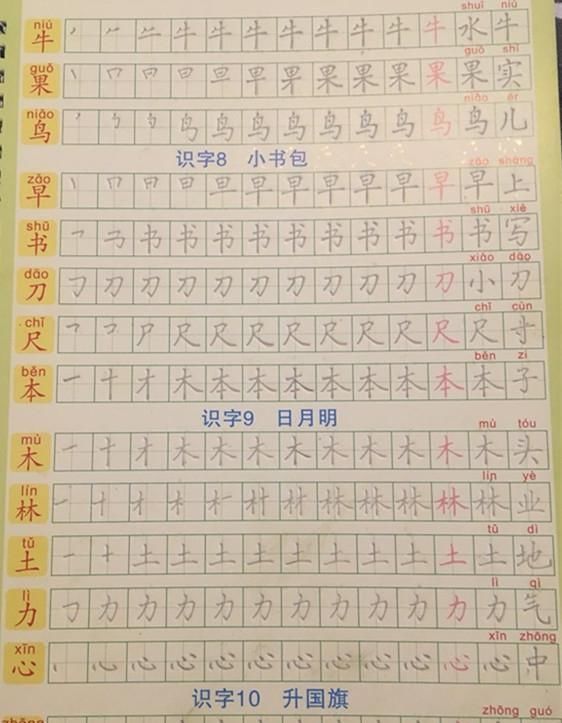 shuǐ niú
niú
牛 丿 牛 牛 牛 牛 牛 牛 牛 牛 水 牛
guǒ shí
guǒ
果 丨 冂 日 旦 早 果 果 果 果 果 果 实
niǎo ér
niǎo
鸟 丿 鸟 鸟 鸟 鸟 鸟 鸟 鸟 鸟 儿
识字8 小书包
zǎo shang
zǎo
早 丨 冂 日 旦 早 早 早 早 早 早 早 上
shū xiě
shū
书 书 书 书 书 书 书 书 书 书 书 写
xiǎo dāo
dāo
刀 刀 刀 刀 刀 刀 刀 刀 刀 刀 刀 小 刀
chǐ cùn
chǐ
尺 尸 尺 尺 尺 尺 尺 尺 尺 尺 尺 寸
běn zi
běn
本 一 十 才 木 本 本 本 本 本 本 本 本 子
mù tóu
mù
木 一 十 才 木 木 木 木 木 木 木 木 木 头
lín yè
lín
林 一 十 才 木 林 林 林 林 林 业
tǔ dì
tǔ
土 一 十 土 土 土 土 土 土 土 土 土 土 地
lì qì
lì
力 力 力 力 力 力 力 力 力 力 力 力 气
xīn zhōng
xīn
心 丶 心 心 心 心 心 心 心 心 心 中
识字10 升国旗
zhōng guó
zhōng
识字9 日月明